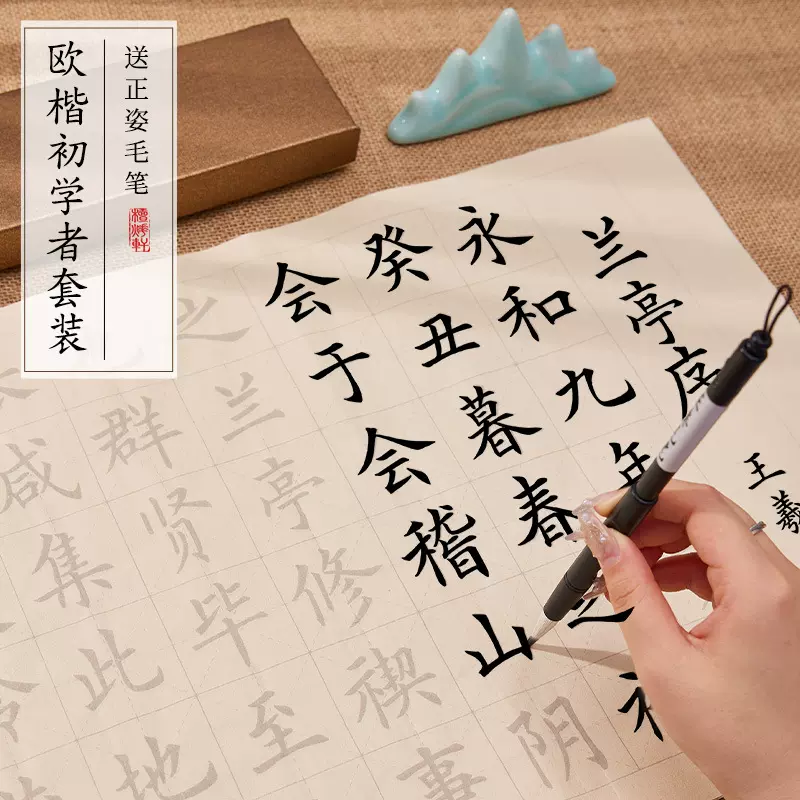 欧楷初学者套装
送正姿毛笔
兰亭序 王羲
永和九年
癸丑暮春之初
会于会稽山阴
之兰亭修禊事
群贤毕至
咸集此地